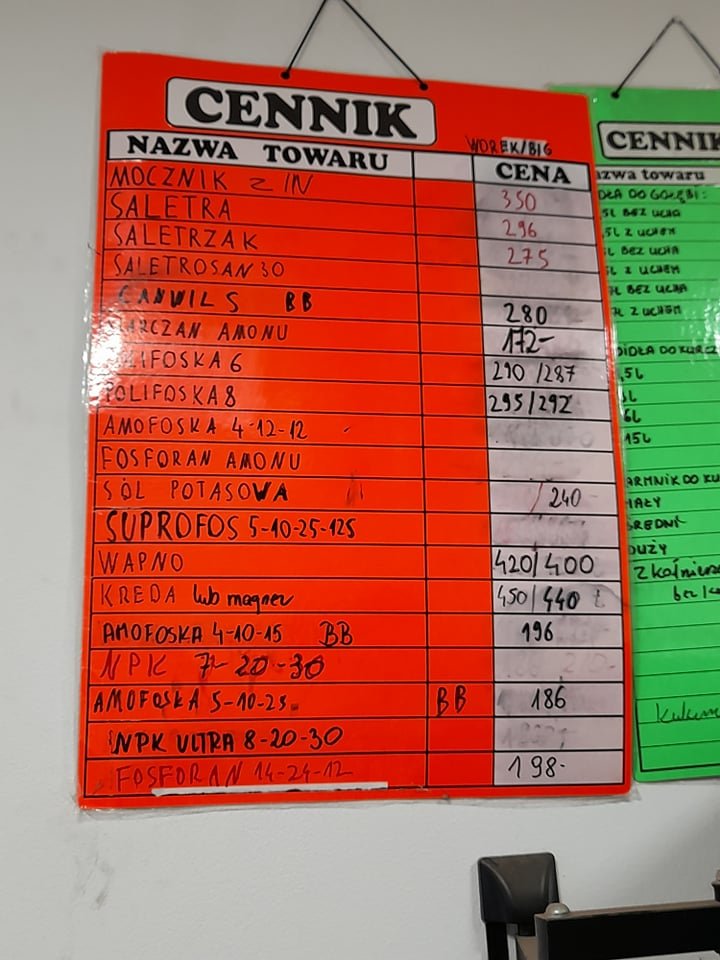 CENNIK
NAZWA TOWARU WOREK/BIG CENA
MOCZNIK z IN 350
SALETRA 296
SALETRZAK 275
SALETROSAN 30
CANWIL S BB 280
SIARCZAN AMONU 172-
POLIFOSKA 6 290/287
POLIFOSKA 8 295/292
AMOFOSKA 4-12-12
FOSFORAN AMONU
SÓL POTASOWA /240
SUPROFOS 5-10-25-12S
WAPNO 420/400
KREDA lub magnez 450/440
AMOFOSKA 4-10-15 BB 196
NPK 7-20-30
AMOFOSKA 5-10-25 BB 186
NPK ULTRA 8-20-30
FOSFORAN 14-24-12 198-
CENNIK
azwa towaru
DŁA DO GOŁĘBI:
5L BEZ UCHA
,5L Z UCHEM
L BEZ UCHA
L Z UCHEM
L BEZ UCHA
L Z UCHEM
OIDŁA DO KURCZ
,5L
L
6L
15L
ARMNIK DO KU
MAŁY
ŚREDNI
DUŻY
z kołnierze
bez k